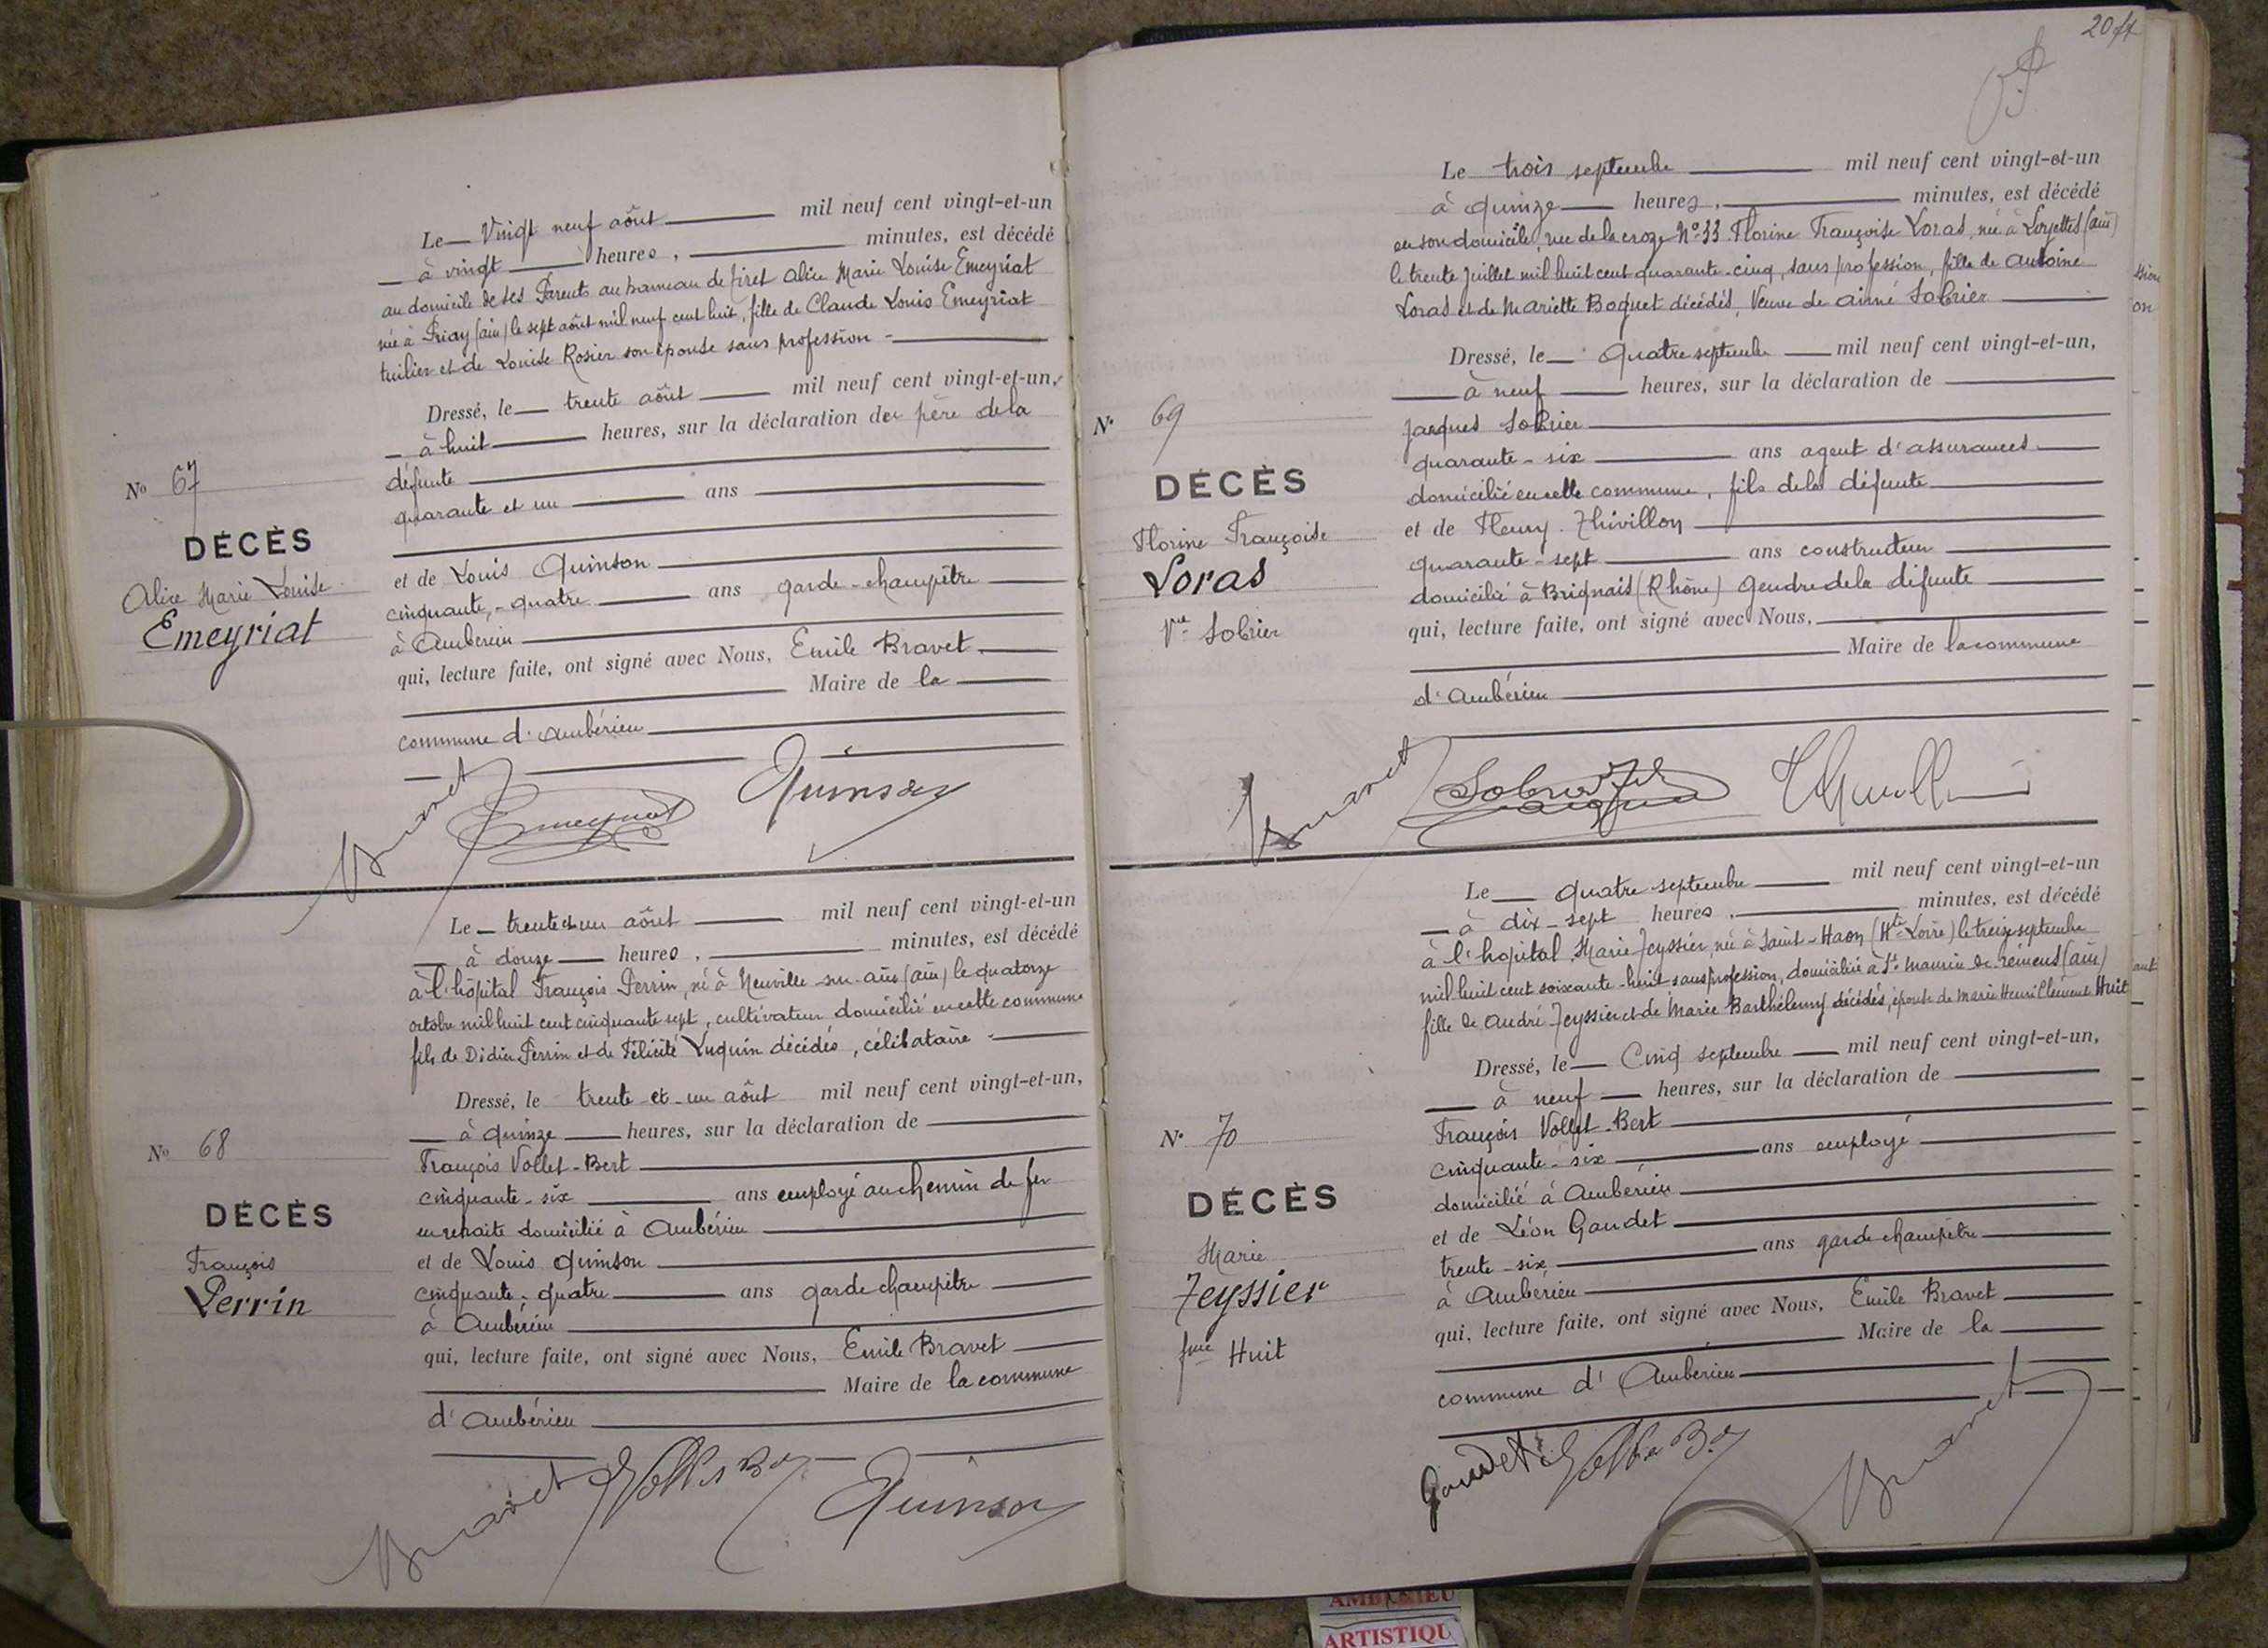 Le Vingt neuf août mil neuf cent vingt-et-un
à vingt heures, minutes, est décédé
au domicile de ses Parents au hameau de Tiret Alice Marie Louise Emeyriat
née à Priay (ain) le sept août mil neuf cent huit, fille de Claude Louis Emeyriat
tuilier et de Louise Rosier son épouse sans profession
Dressé, le trente août mil neuf cent vingt-et-un,
à huit heures, sur la déclaration du père de la
défunte
quarante et un ans
et de Louis Quinson
cinquante-quatre ans garde-champêtre
à Ambérieu
qui, lecture faite, ont signé avec Nous, Emile Bravet
Maire de la
commune d'Ambérieu
No 67
DÉCÈS
Alice Marie Louise
Emeyriat
Bravet Emeyriat Quinson
Le trente et un août mil neuf cent vingt-et-un
à douze heures, minutes, est décédé
à l'hôpital François Perrin, né à Neuville-sur-ain (ain) le quatorze
octobre mil huit cent cinquante sept, cultivateur domicilié en cette commune
fils de Didier Perrin et de Félicité Luquin décédés, célibataire
Dressé, le trente et un août mil neuf cent vingt-et-un,
à quinze heures, sur la déclaration de
François Vollet-Bert
cinquante-six ans employé au chemin de fer
en retraite domicilié à Ambérieu
et de Louis Quinson
cinquante-quatre ans garde champêtre
à Ambérieu
qui, lecture faite, ont signé avec Nous, Emile Bravet
Maire de la commune
d'Ambérieu
No 68
DÉCÈS
François
Perrin
Bravet Vollet Bert Quinson
20
Le trois septembre mil neuf cent vingt-et-un
à quinze heures, minutes, est décédé
en son domicile, rue de la croze No 33 Florine Françoise Loras, née à Loyettes (ain)
le trente Juillet mil huit cent quarante-cinq, sans profession, fille de Antoine
Loras et de Mariette Boquet décédés, Veuve de aimé Sobrier
Dressé, le Quatre septembre mil neuf cent vingt-et-un,
à neuf heures, sur la déclaration de
Jacques Sobrier
quarante-six ans agent d'assurances
domicilié en cette commune, fils de la défunte
et de Fleury Thivillon
quarante-sept ans constructeur
domicilié à Brignais (Rhône) gendre de la défunte
qui, lecture faite, ont signé avec Nous,
Maire de la commune
d'Ambérieu
No 69
DÉCÈS
Florine Françoise
Loras
Vve Sobrier
Bravet Sobrier
Le quatre septembre mil neuf cent vingt-et-un
à dix-sept heures, minutes, est décédé
à l'hopital Marie Teyssier, née à Saint-Haon (Hte Loire) le treize septembre
mil huit cent soixante-huit sans profession, domiciliée à St Maurice de rémens (ain)
fille de André Teyssier et de Marie Barthélemy décédés, épouse de Marie Henri Clément Huit
Dressé, le Cinq septembre mil neuf cent vingt-et-un,
à neuf heures, sur la déclaration de
François Vollet-Bert
cinquante-six ans employé
domicilié à Ambérieu
et de Léon Gaudet
trente-six ans garde champêtre
à Ambérieu
qui, lecture faite, ont signé avec Nous, Emile Bravet
Maire de la
commune d'Ambérieu
No 70
DÉCÈS
Marie
Teyssier
fme Huit
Gaudet Vollet Bert Bravet
AMBÉRIEU
ARTISTIQU